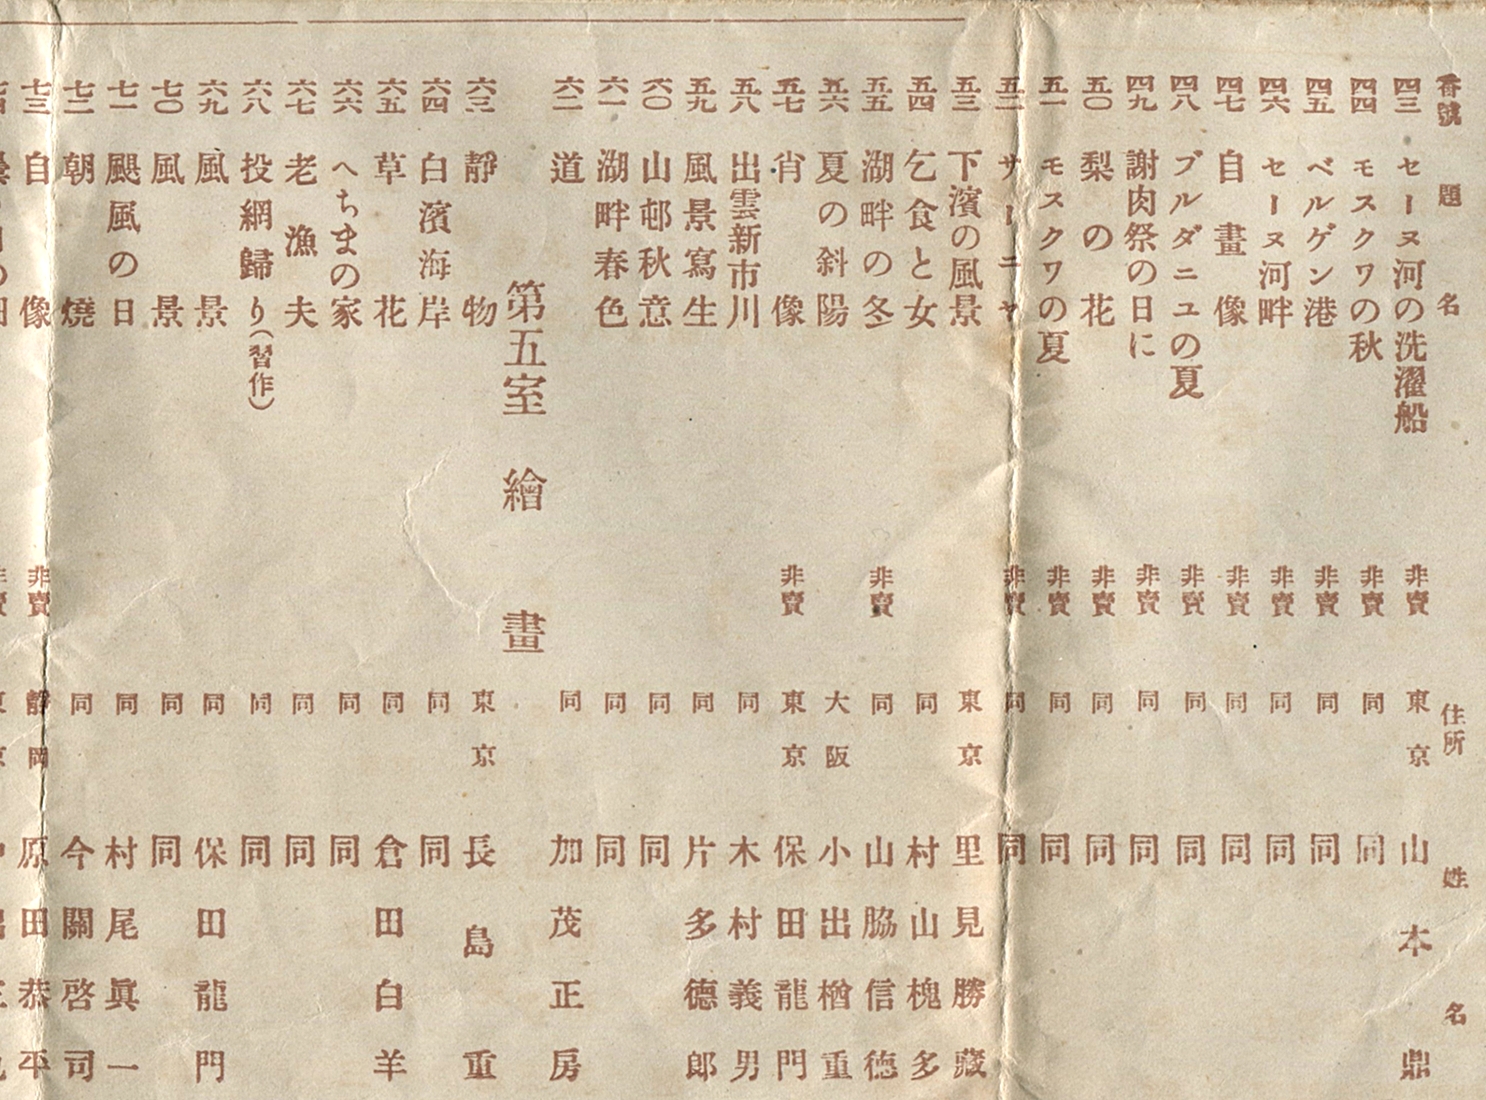 番號 題名 住所 姓名
四三 セーヌ河の洗濯船 非賣 東京 山本鼎
四四 モスクワの秋 非賣 同 同
四五 ベルゲン港 非賣 同 同
四六 セーヌ河畔 非賣 同 同
四七 自畫像 非賣 同 同
四八 ブルダニユの夏 非賣 同 同
四九 謝肉祭の日に 非賣 同 同
五〇 梨の花 非賣 同 同
五一 モスクワの夏 非賣 同 同
五二 サーニヤ 非賣 同 同
五三 下濱の風景 東京 里見勝藏
五四 乞食と女 同 村山槐多
五五 湖畔の冬 非賣 同 山脇信徳
五六 夏の斜陽 大阪 小出楢重
五七 肖像 非賣 東京 保田龍門
五八 出雲新市川 同 木村義男
五九 風景寫生 同 片多德郎
六〇 山邨秋意 同 同
六一 湖畔春色 同 同
六二 道 同 加茂正房
第五室 繪畫
六三 靜物 東京 長島重
六四 白濱海岸 同 同
六五 草花 同 倉田白羊
六六 へちまの家 同 同
六七 老漁夫 同 同
六八 投網歸り(習作) 同 同
六九 風景 同 保田龍門
七〇 風景 同 同
七一 颶風の日 同 村尾眞一
七二 朝燒 同 今關啓司
七三 自像 非賣 靜岡 原田恭平